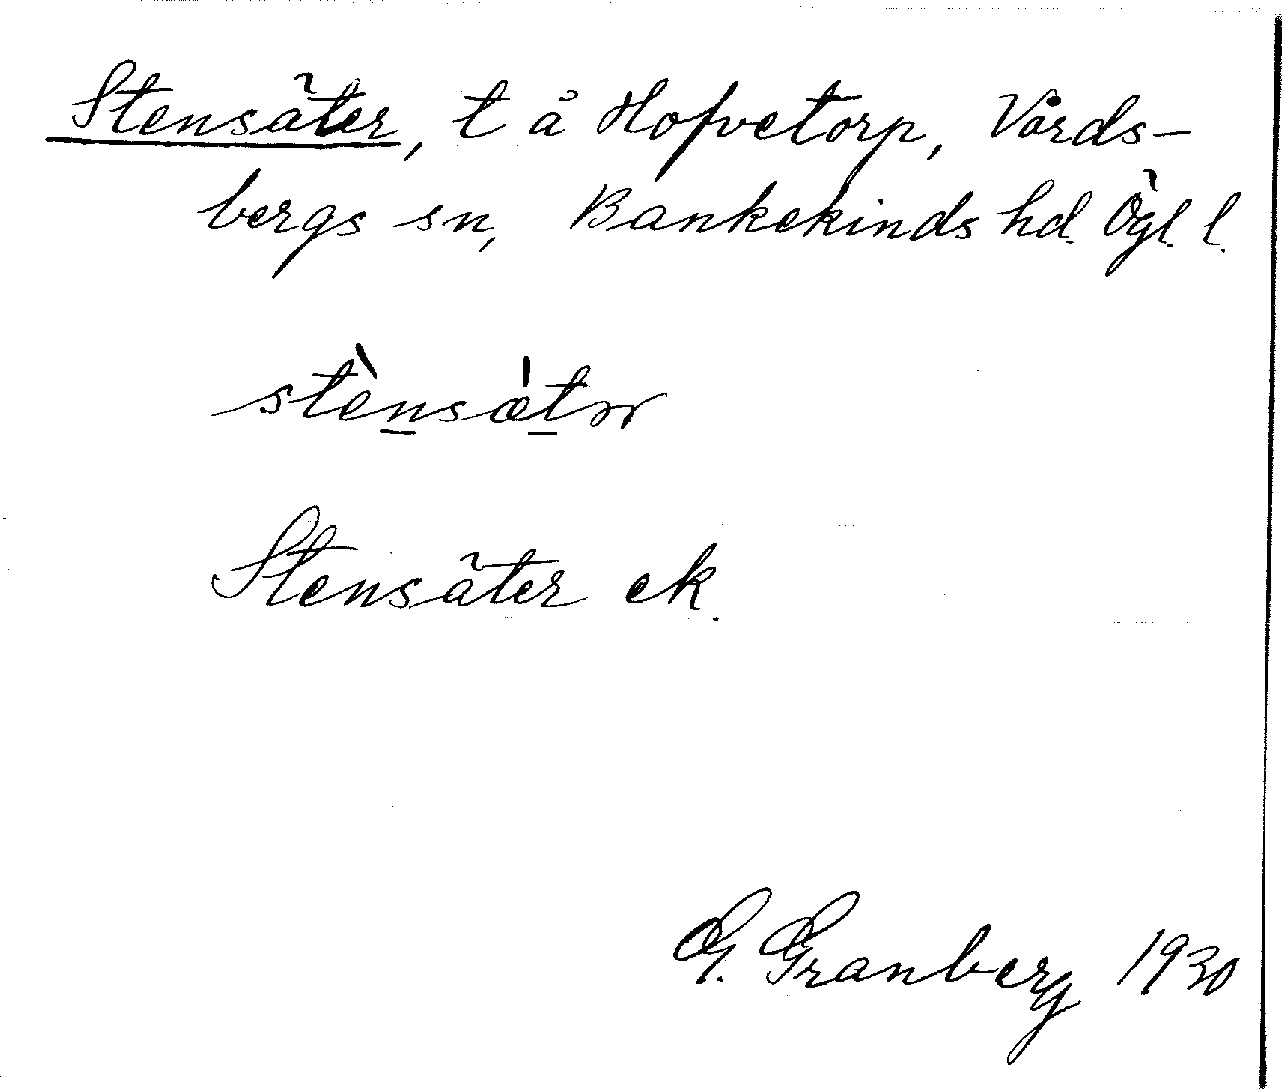 Stensäter, t å Hofvetorp, Vårds-
bergs sn, Bankekinds hd. Ögl. l.
stènsǽtər
Stensäter ek.
G. Granberg 1930